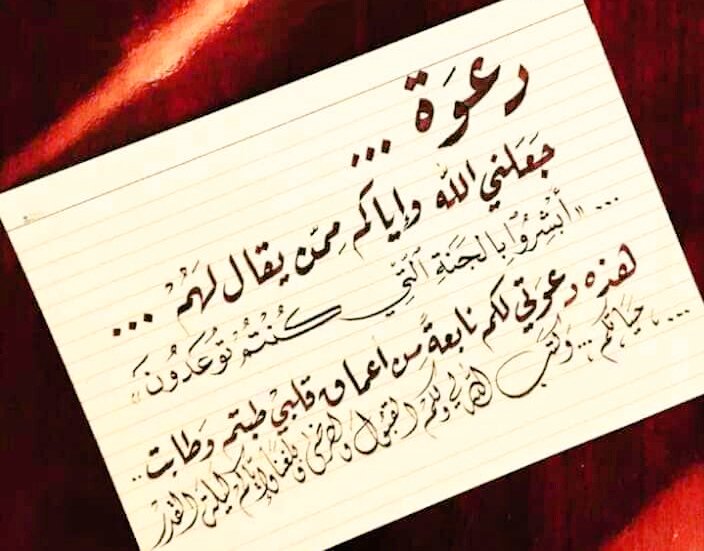 دعوَة ...
جَعَلني الله وإياكم ممّن يقال لهَمُ ...
... «أَبْشِرُوا بِالجَنَةِ الَّتِي كُنْتُمْ تُوعَدُونَ»
هذه دعوَتي لكم نابعةً من أعماق قلبيْ طبتم وَطابت ..
... حيَاتكم ... وَكتب الله لي ولكم القبوُل والرضى وبلغنا وإياكم ليلة القدر